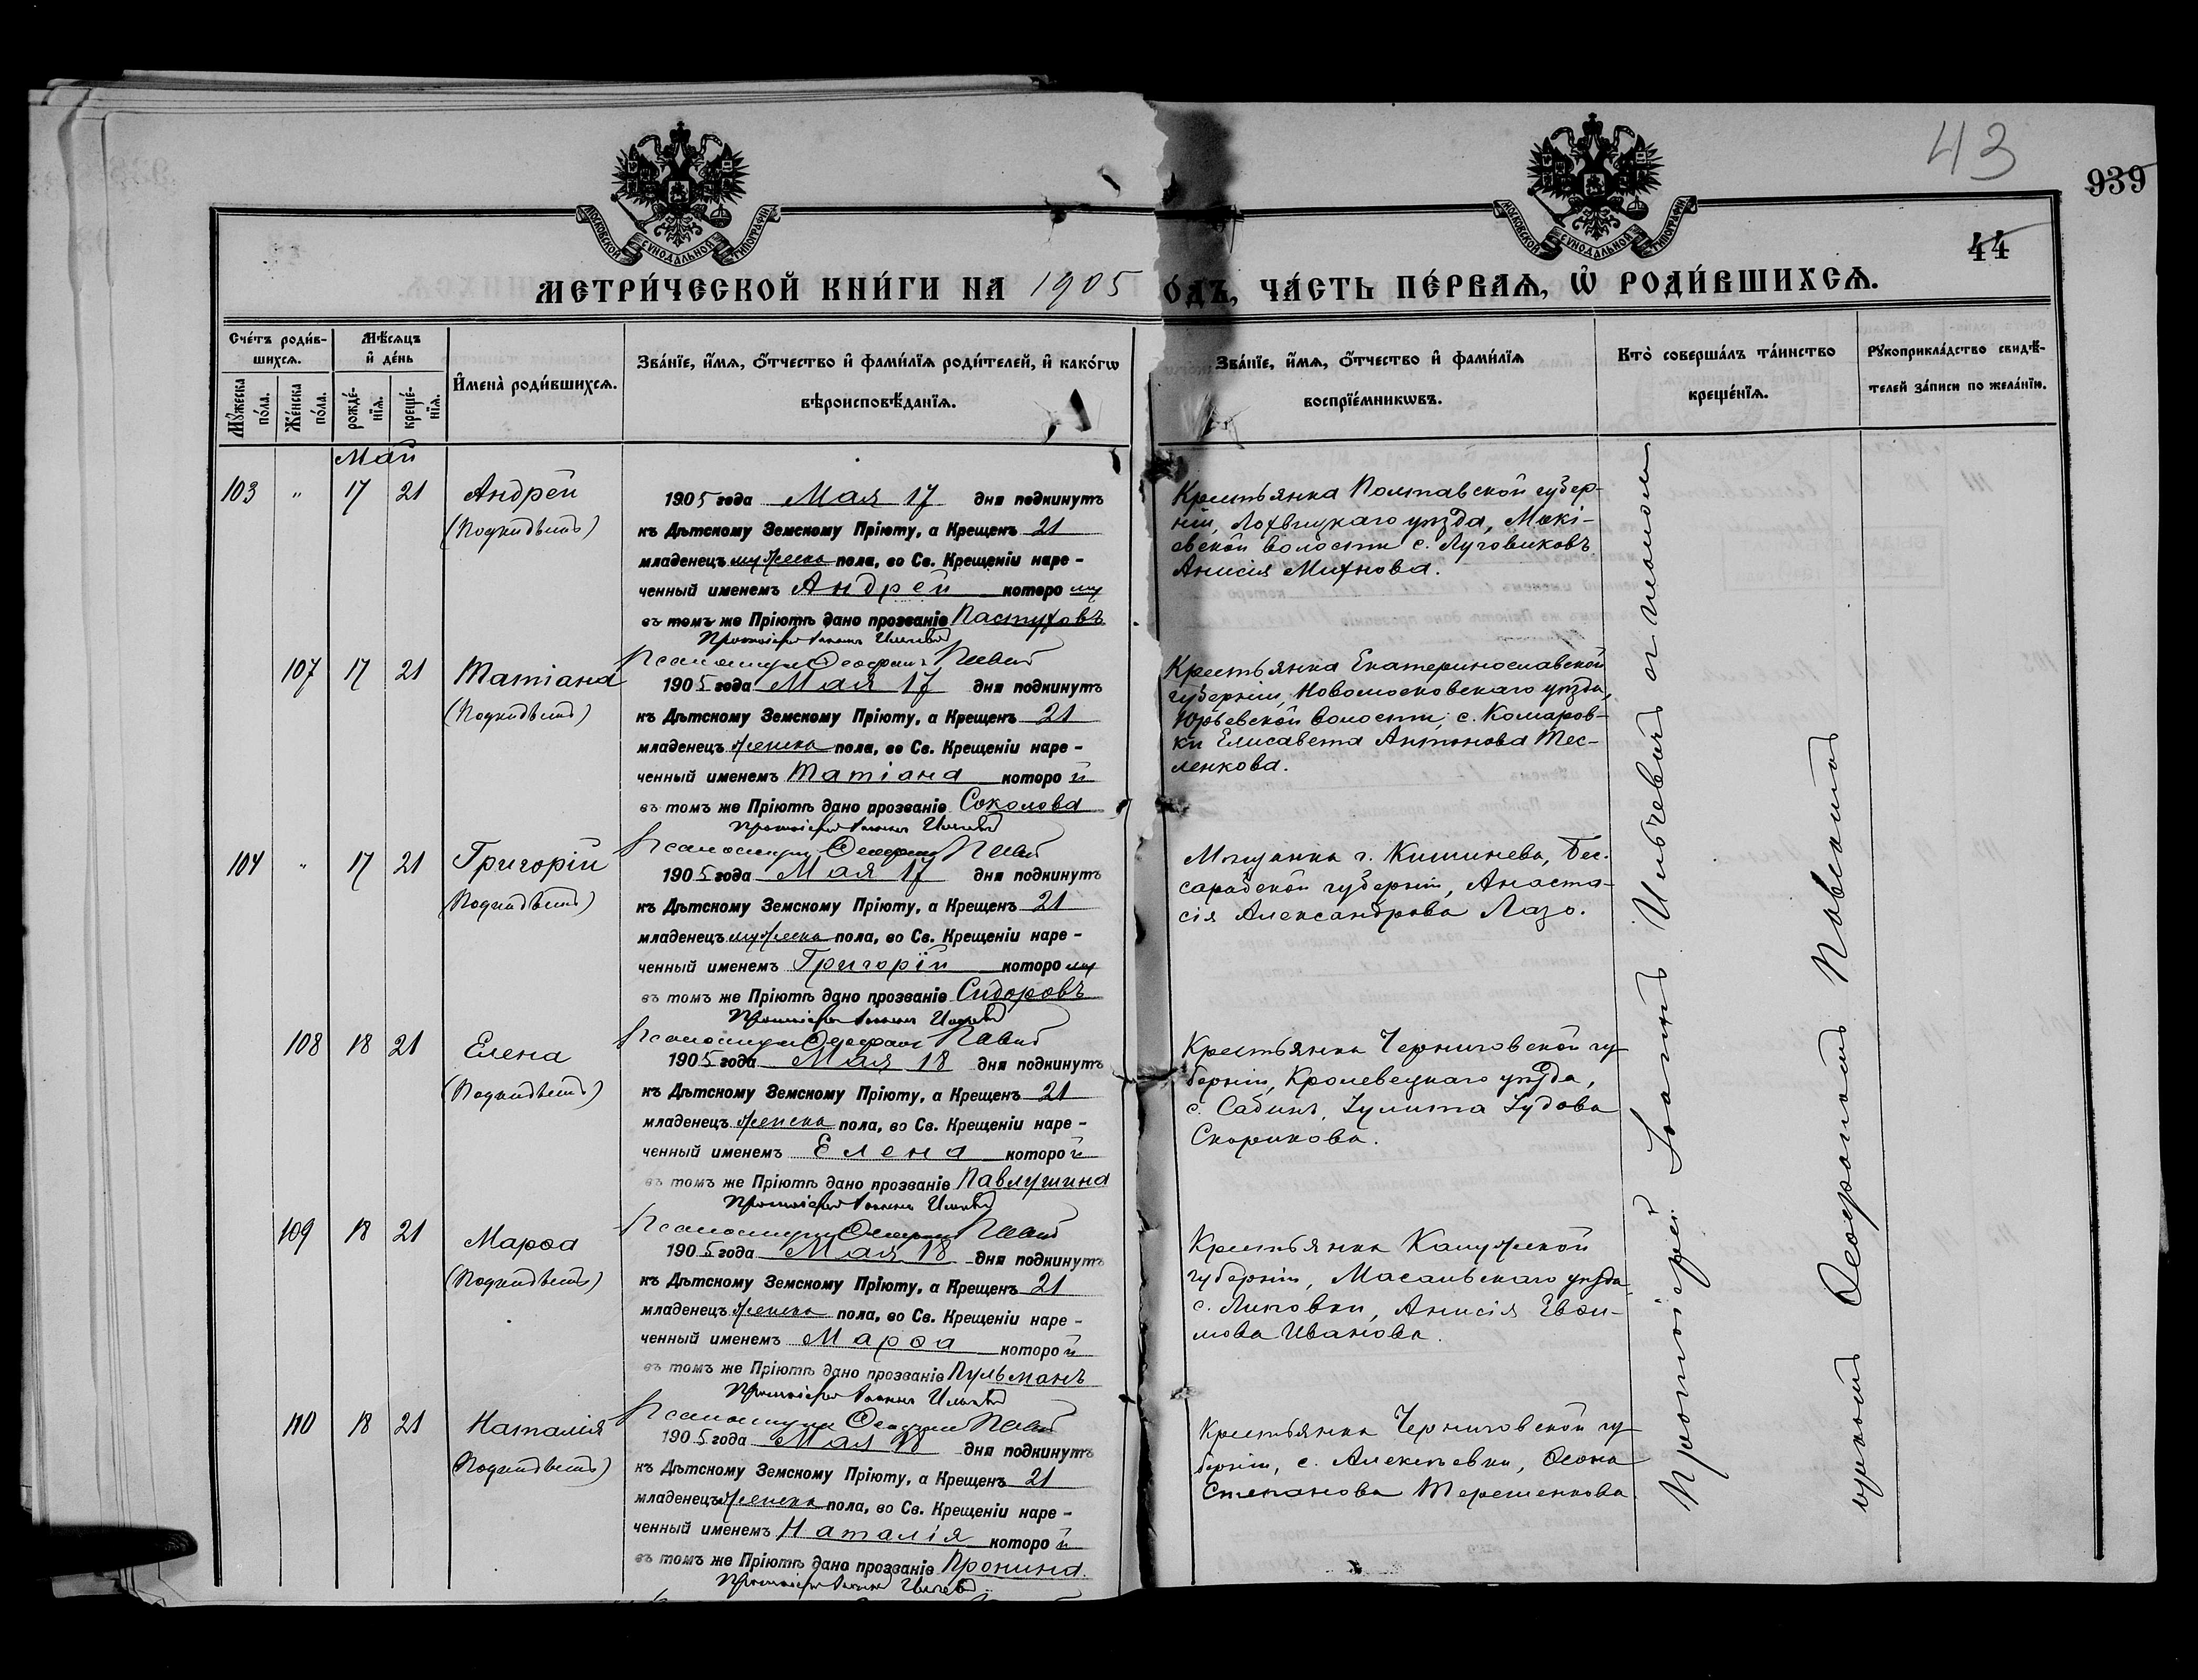 43
939
44
МОСКОВСКОЙ СѴНОДАЛЬНОЙ ТИПОГРАФІИ
МОСКОВСКОЙ СѴНОДАЛЬНОЙ ТИПОГРАФІИ
МЕТРИ́ЧЕСКОЙ КНИ́ГИ НА 1905 О́ДЪ, ЧА́СТЬ ПЕ́РВАѦ, Ѽ РОДИ́ВШИХСѦ.
Сче́тъ роди́в-
шихсѧ.
Мꙋ́жеска по́ла.
Же́нска по́ла.
Мѣ́сѧцъ
и҆ де́нь
рожде́-
нїѧ.
креще́-
нїѧ.
И҆мена̀ роди́вшихсѧ.
Зва́нїе, и҆́мѧ, ѻ҆́тчество и҆ фами́лїѧ роди́телей, и҆ како́гѡ
вѣроисповѣ́данїѧ.
Зва́нїе, и҆́мѧ, ѻ҆́тчество и҆ фами́лїѧ
воспрїе́мникѡвъ.
Кто̀ соверша́лъ та́инство
креще́нїѧ.
Рꙋкоприкла́дство свидѣ́-
телей за́писи по жела́нїю.
Май
103 " 17 21 Андрей
(Подкидышъ)
1905 года Мая 17 дня подкинутъ
къ Дѣтскому Земскому Пріюту, а Крещенъ 21
младенецъ мужеска пола, во Св. Крещеніи наре-
ченный именемъ Андрей которому
въ томъ же Пріютѣ дано прозваніе Пастуховъ
Протоіерей Іоаннъ Ильчевичъ
Псаломщикъ Ѳеофанъ
Крестьянка Полтавской губер-
ніи, Лохвицкаго уѣзда, Мокі-
евской волости с. Луговиковъ
Анисія Михнова.
107 17 21 Татіана
(Подкидышъ)
1905 года Мая 17 дня подкинутъ
къ Дѣтскому Земскому Пріюту, а Крещенъ 21
младенецъ женска пола, во Св. Крещеніи наре-
ченный именемъ Татіана которой
въ томъ же Пріютѣ дано прозваніе Соколова
Протоіерей Іоаннъ Ильчевичъ
Псаломщикъ Ѳеофанъ
Крестьянка Екатеринославской
губерніи, Новомосковскаго уѣзда,
Юрьевской волости, с. Комаров-
ки Елисавета Антонова Тес-
ленкова.
104 " 17 21 Григорій
(Подкидышъ)
1905 года Мая 17 дня подкинутъ
къ Дѣтскому Земскому Пріюту, а Крещенъ 21
младенецъ мужеска пола, во Св. Крещеніи наре-
ченный именемъ Григорій которому
въ томъ же Пріютѣ дано прозваніе Сидоровъ
Протоіерей Іоаннъ Ильчевичъ
Псаломщикъ Ѳеофанъ
Мѣщанка г. Кишинева, Бес-
сарабской губерніи, Анаста-
сія Александрова Лазо.
108 18 21 Елена
(Подкидышъ)
1905 года Мая 18 дня подкинутъ
къ Дѣтскому Земскому Пріюту, а Крещенъ 21
младенецъ женска пола, во Св. Крещеніи наре-
ченный именемъ Елена которой
въ томъ же Пріютѣ дано прозваніе Павлушина
Протоіерей Іоаннъ Ильчевичъ
Псаломщикъ Ѳеофанъ
Крестьянка Черниговской гу-
берніи, Кролевецкаго уѣзда,
с. Сабинъ, Іулита Іудова
Скорикова.
109 18 21 Марѳа
(Подкидышъ)
1905 года Мая 18 дня подкинутъ
къ Дѣтскому Земскому Пріюту, а Крещенъ 21
младенецъ женска пола, во Св. Крещеніи наре-
ченный именемъ Марѳа которой
въ томъ же Пріютѣ дано прозваніе Пульманъ
Протоіерей Іоаннъ Ильчевичъ
Псаломщикъ Ѳеофанъ
Крестьянка Калужской
губерніи, Масальскаго уѣзда,
с. Липовки, Анисія Евѳи-
мова Иванова.
110 18 21 Наталія
(Подкидышъ)
1905 года Мая 18 дня подкинутъ
къ Дѣтскому Земскому Пріюту, а Крещенъ 21
младенецъ женска пола, во Св. Крещеніи наре-
ченный именемъ Наталія которой
въ томъ же Пріютѣ дано прозваніе Пронина.
Протоіерей Іоаннъ Ильчевичъ
Крестьянка Черниговской гу-
берніи, с. Алексѣевки, Ѳеона
Степанова Терешенкова
Протоіерей Іоаннъ Ильчевичъ
Ѳеофаномъ